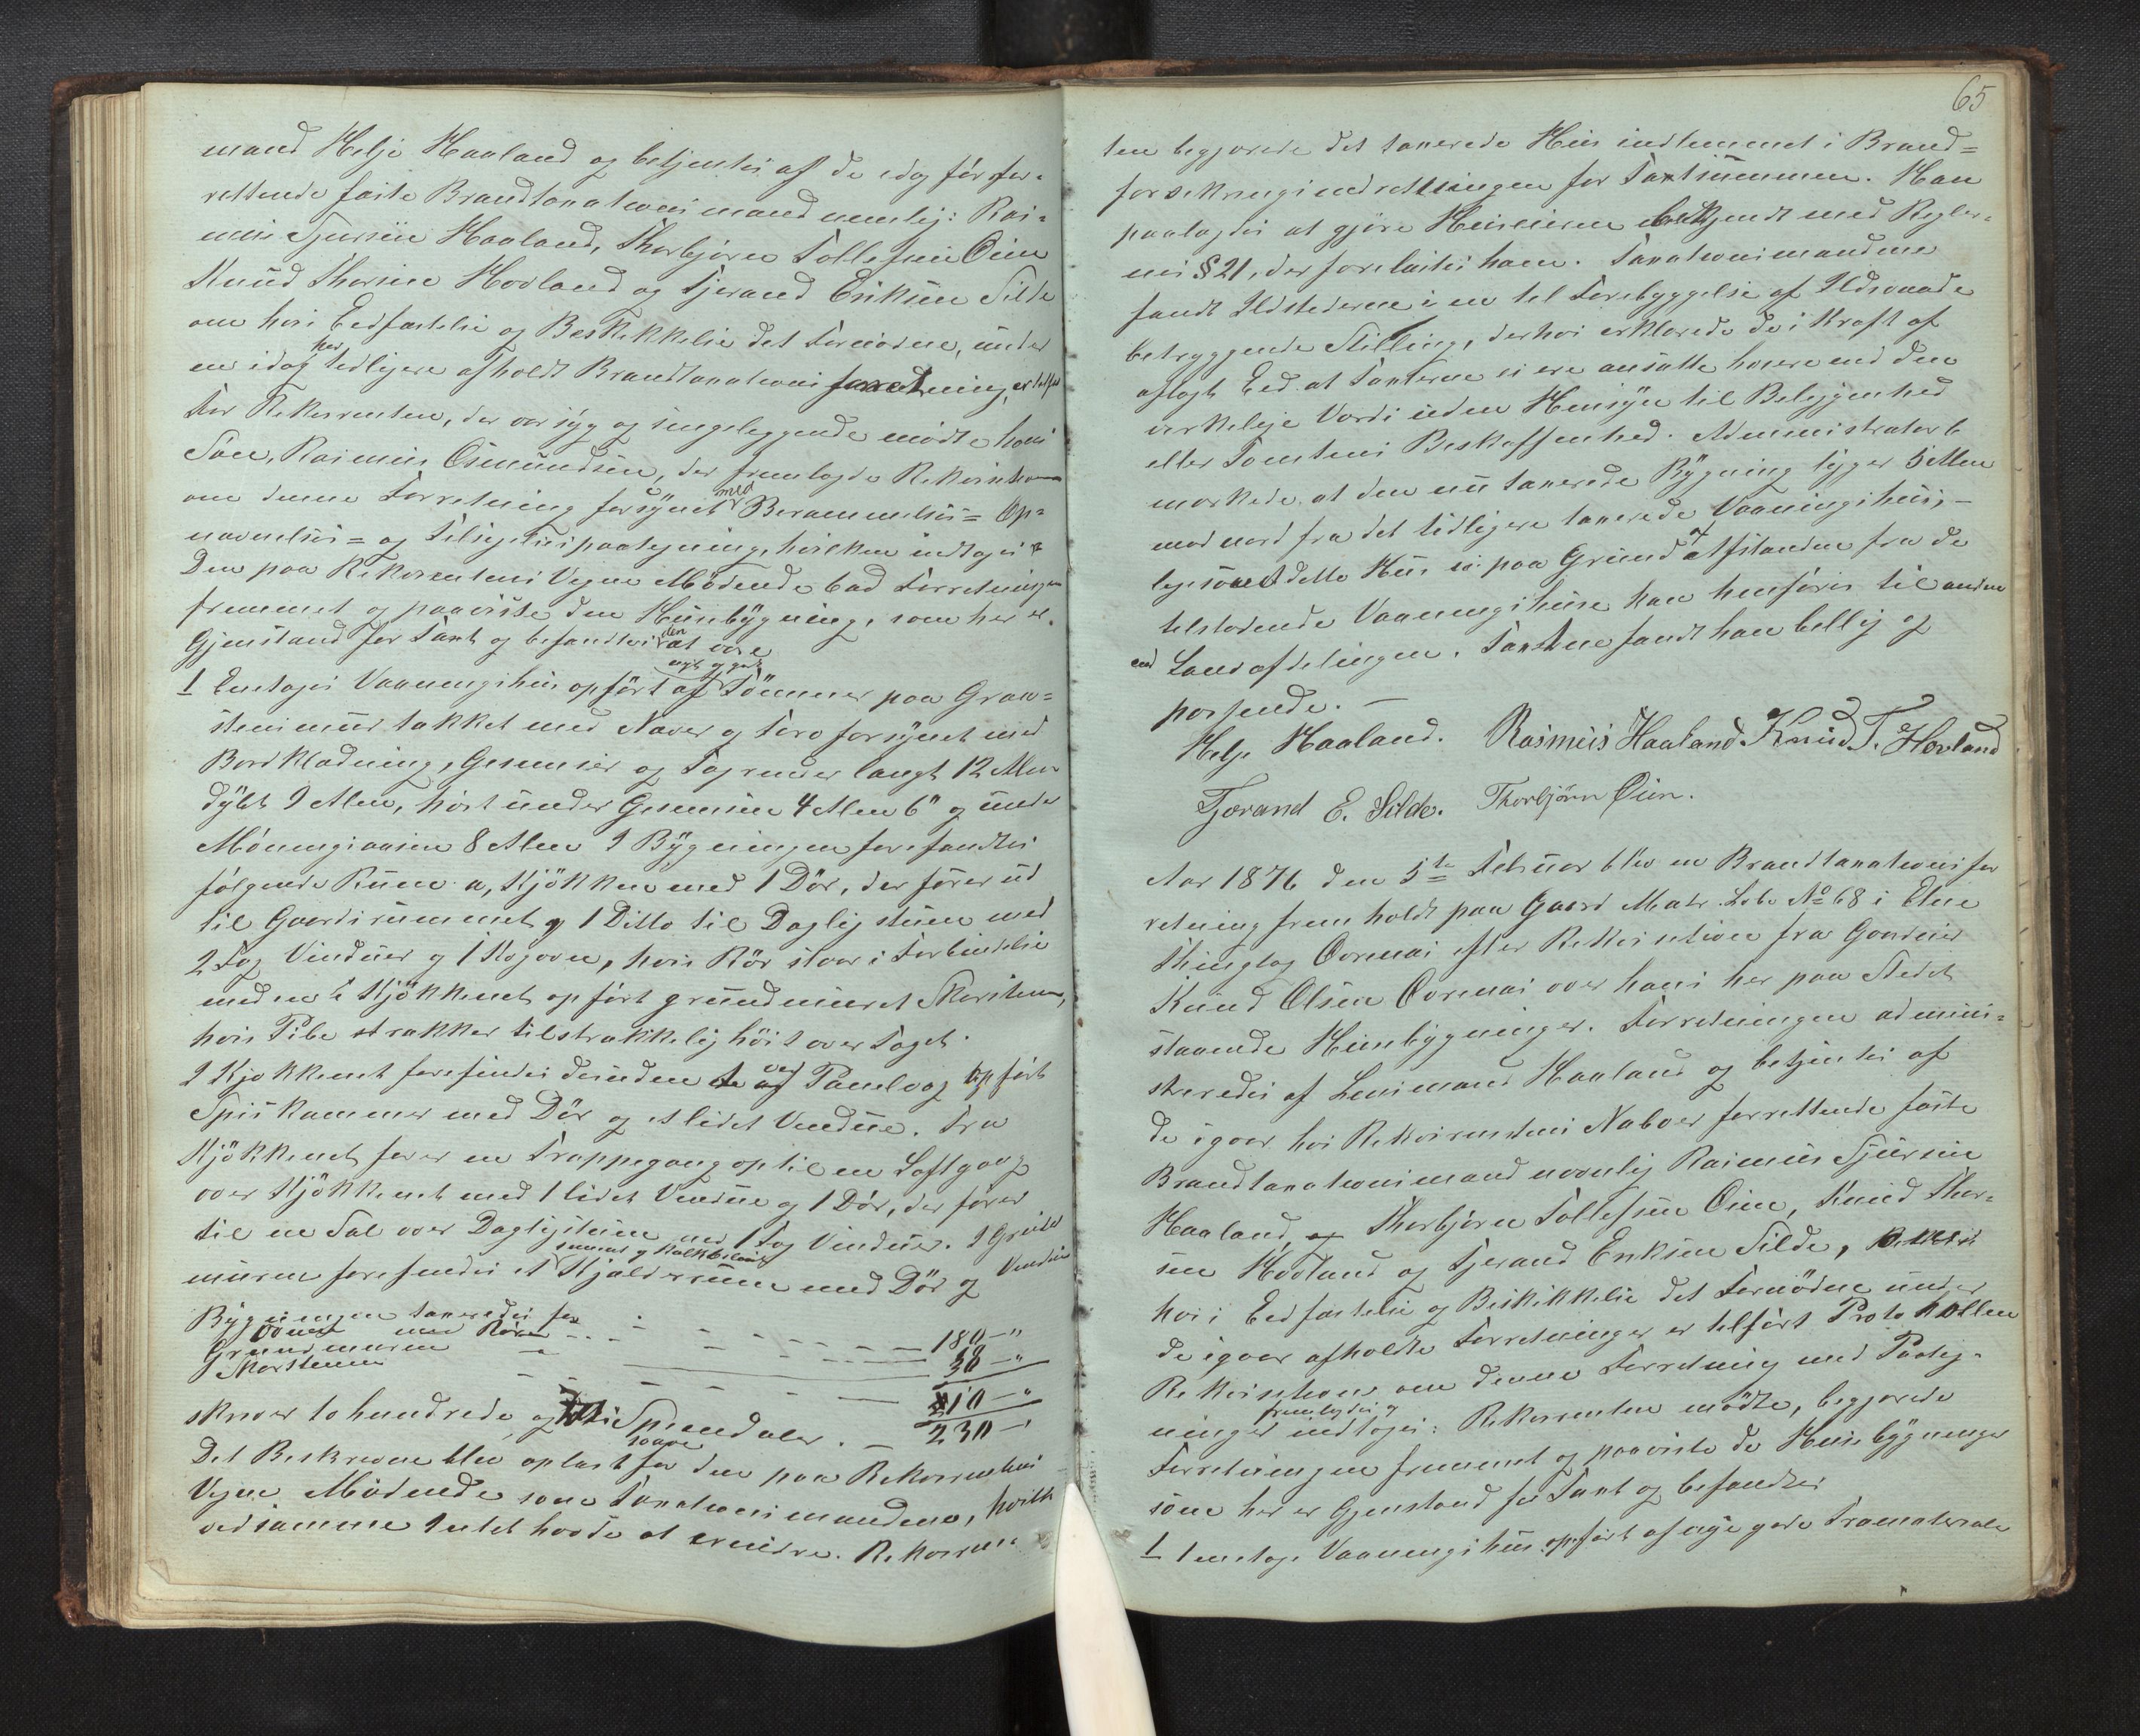 mand Helje Haaland og betjentes af de idag før for-
rettende faste Brandtaxationsmænd nemlig: Ras-
mus Sjursen Haaland, Thorbjørn Tollefsen Øien
Knud Thorsen Hovland og Tjerand Eriksen Silde
om hvis Eedfæstelse og Beskikkelse det Fornødne, under
en idag her tidligere afholdt Brandtaxationsforretning, er tilført
For Rekvirenten, der var syg og sengeliggende mødte hans
Søn, Rasmus Osmundsen, der fremlagde Rekvisition
om denne Forretning forsynet med Berammelses= Op=
nævnelses= og Tilsigelsespaategning, hvilken indtages #
Den paa Rekvirentens Vegne Mødende bad Forretningen
fremmet og paaviste den Huusbygning, som her er
Gjenstand for Taxt og befandtes den at være
1 Eenetages Vaaningshus opført af nyt og godt Tømmer paa Graa=
stensmuur takket med Næver og Torv forsynet med
Bordklædning, Gesimser og Tagrender langt 12 Alen
dybt 9 Alen, høit under Gesimsen 4 Alen 6" og under
Møningsaasen 8 Alen I Bygningen forefandtes
følgende Rum: a, Kjøkken med 1 Dør, der fører ud
til Gaardsrummet og 1 Ditto til Dagligstuen med
2 Fag Vinduer og 1 Kogovn, hvis Rør staar i Forbindelse
med en i Kjøkkenet opført grundmuret Skorsten,
hvis Pibe strækker tilstrækkelig høit over Taget.
I Kjøkkenet forefindes desuden et af Panelvæg opført
Spiskammer med Dør og et lidet Vindue. Fra
Kjøkkenet fører en Trappegang op til en Loftgang
over Kjøkkenet med 1 lidet Vindue og 1 Dør, der fører
til en Sal over Dagligstuen med 1 Fag Vinduer. I Grund
muren forefindes et muret og kalkbeslaaet Kjælderrum med Dør og Vindue
Bygningen taxeredes for
Ovnen med Rør - - - - - 180-"
Grundmuren - - - - - 30-"
Skorstenen - - - - - 10-"
230-"
skriver to hundrede og tredive Speciedaler. —
Det Beskrevne blev oplæst saavel for den paa Rekvirentens
Vegne Mødende som Taxationsmændene, hvilke
ved samme Intet havde at erindre. Rekviren=
65
ten begjærede det taxerede Huus indlemmet i Brand=
forsikringsindretningen for Taxtsummen. Han
paalagdes at gjøre Huuseieren bekjendt med Regler=
nes § 21, der forelæstes ham. Taxationsmændene
fandt Ildstederne i en til Forebyggelse af Ildsvaade
betryggende Stilling, derhos erklærede de i Kraft af
aflagt Eed at Taxterne ei ere ansatte høiere end den
virkelige Værdi uden Hensyn til Beliggenhed
eller Tomtens Beskaffenhed. Administrator be
mærkede at den nu taxerede Bygning ligger 5 Alen
mod nord fra det tidligere taxerede Vaaningshuus, —
ligesom dette Huus ei paa Grund af Afstanden fra de
tilstødende Vaaningshuse kan henføres til anden
end Landafdelingen. Taxterne fandt han billig og
passende. —
Helje Haaland. Rasmus Haaland Knud T. Hovland
Tjerand E. Silde. Thorbjørn Øien.
Aar 1876 den 5te Februar blev en Brandtaxationsfor
retning fremholdt paa Gaard Matr. Løbe No 68 i Etne
Thinglag Øvrenæs efter Rekvisition fra Gaardeier
Knud Olsen Øvrenæs over hans her paa Stedet
staaende Huusbygninger. Forretningen admini=
streredes af Lensmand Haaland og betjentes af
de igaar hos Rekvirentens Naboer forrettende faste
Brandtaxationsmænd nemlig Rasmus Sjursen
Haaland, og Thorbjørn Tollefsen Øien, Knud Thor=
sen Hovland og Tjerand Eriksen Silde,
hvis Eedfæstelse og Beskikkelse det Fornødne under
de igaar afholdte Forretninger er tilført Protokollen
Rekvisition om denne Forretning med Paateg=
ninger fremlagdes og indtages: Rekvirenten mødte, begjærede
Forretningen fremmet og paaviste de Huusbygninger
som her er Gjenstand for Taxt og befandtes
1 1 enetages Vaaningshus opført af nye gode Træmaterialer